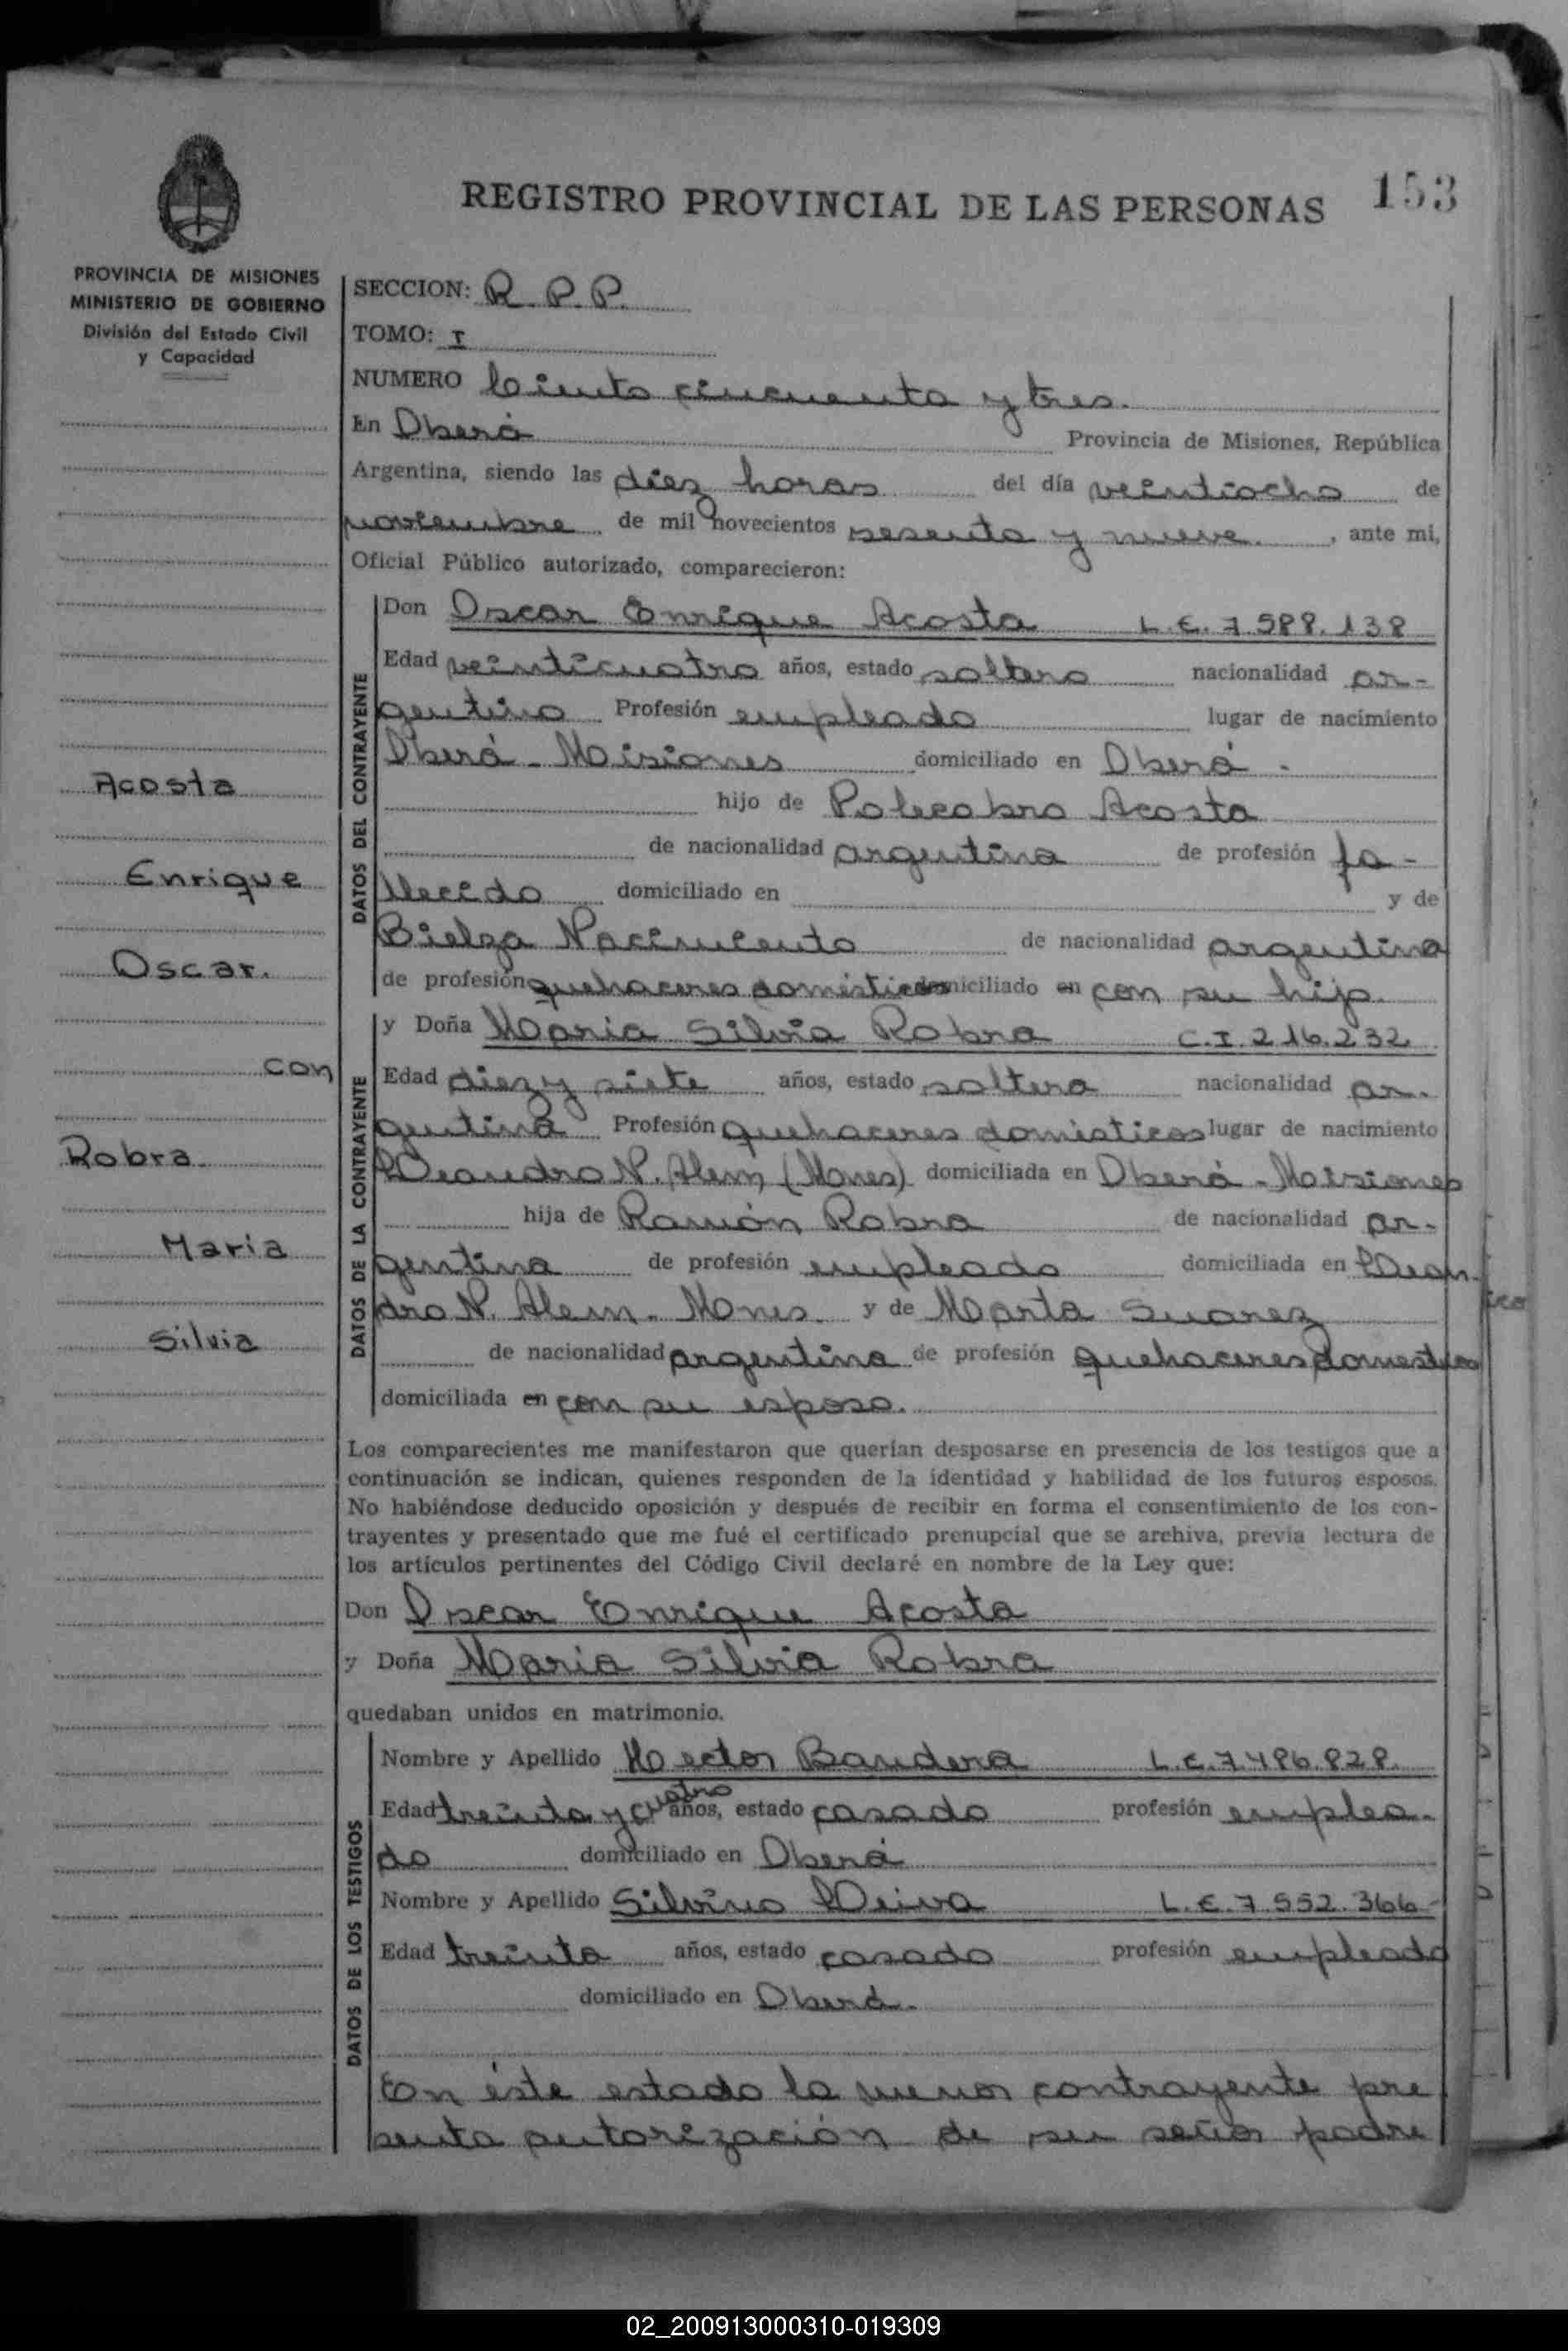 REGISTRO PROVINCIAL DE LAS PERSONAS 153
PROVINCIA DE MISIONES
MINISTERIO DE GOBIERNO
División del Estado Civil
y Capacidad
SECCION: R. P. P.
TOMO: I
NUMERO Ciento cincuenta y tres.
En Oberá Provincia de Misiones, República
Argentina, siendo las diez horas del día veintiocho de
noviembre de mil novecientos sesenta y nueve. , ante mi,
Oficial Público autorizado, comparecieron:
DATOS DEL CONTRAYENTE
Don Oscar Enrique Acosta L.E. 7.588.138
Edad veinticuatro años, estado soltero nacionalidad ar-
gentino Profesión empleado lugar de nacimiento
Oberá - Misiones domiciliado en Oberá -
hijo de Policabro Acosta
de nacionalidad argentina de profesión fa-
llecido domiciliado en y de
Bielga Nacimiento de nacionalidad argentina
de profesión quehaceres domésticos domiciliado en con su hijo.
DATOS DE LA CONTRAYENTE
y Doña Maria Silvia Robra C.I. 216.232
Edad diez y siete años, estado soltera nacionalidad ar-
gentina Profesión quehaceres domésticos lugar de nacimiento
Leandro N. Alem (Mnes) domiciliada en Oberá - Misiones
hija de Ramón Robra de nacionalidad ar-
gentina de profesión empleado domiciliada en Lean-
dro N. Alem - Mnes. y de Marta Suarez
de nacionalidad argentina de profesión quehaceres domesticos
domiciliada en con su esposo.
Los comparecientes me manifestaron que querían desposarse en presencia de los testigos que a
continuación se indican, quienes responden de la identidad y habilidad de los futuros esposos.
No habiéndose deducido oposición y después de recibir en forma el consentimiento de los con-
trayentes y presentado que me fué el certificado prenupcial que se archiva, previa lectura de
los artículos pertinentes del Código Civil declaré en nombre de la Ley que:
Don Oscar Enrique Acosta
y Doña Maria Silvia Robra
quedaban unidos en matrimonio.
DATOS DE LOS TESTIGOS
Nombre y Apellido Hector Bandera L.E. 7.486.828.
Edad treinta y cuatro años, estado casado profesión emplea-
do domiciliado en Oberá
Nombre y Apellido Silvino Leiva L.E. 7.552.366-
Edad treinta años, estado casado profesión empleado
domiciliado en Oberá.
En éste estado la menor contrayente pre
senta autorización de su señor padre
Acosta
Enrique
Oscar.
con
Robra
Maria
Silvia
02_200913000310-019309